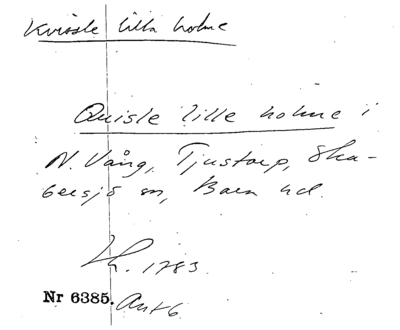 Kvissle lilla holme
Quisle lille holme i
N. Vång, Tjustorp, Ska-
bersjö sn, Bara hd.
Lh. 1783.
Nr 6385. Ant 6